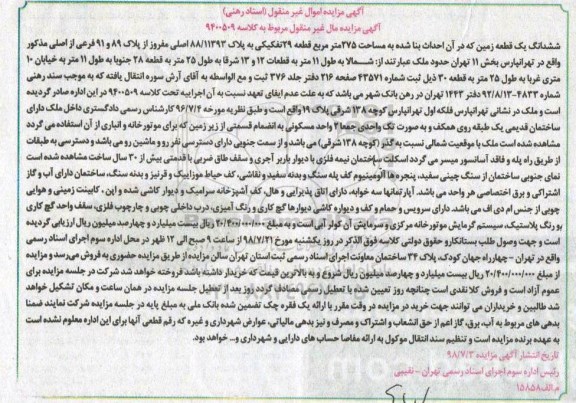 آگهی مزایده اموال غیر منقول (اسناد رهنی)
آگهی مزایده مال غیر منقول مربوط به کلاسه ۹۴۰۰۵۰۹
ششدانگ یک قطعه زمین که در آن احداث بنا شده به مساحت ۲۷۵متر مربع قطعه ۲۹تفکیکی به پلاک ۸۸/۱۱۳۹۳ اصلی مفروز از پلاک ۸۹ و ۹۱ فرعی از اصلی مذکور
واقع در تهرانپارس بخش ۱۱ تهران حدود ملک عبارتند از: شمالا به طول ۱۱ متر به قطعات ۱۲ و ۱۳ شرقا به طول ۲۵ متر به قطعه ۲۸ جنوبا به طول ۱۱ متر به خیابان ۱۰
متری غربا به طول ۲۵ متر به قطعه ۳۰ ذیل ثبت شماره ۴۳۵۷۱ صفحه ۲۱۶ دفتر جلد ۳۷۶ ثبت و مع الواسطه به آقای آرش سوره انتقال یافته که به موجب سند رهنی
۴۸۳۳-۹۲/۸/۱۳ دفتر ۱۴۴۳ تهران در رهن بانک شهر می باشد که به علت عدم ایفای تعهد نسبت به آن اجراییه تحت کلاسه ۹۴۰۰۵۰۹ در این اداره صادر گردیده
است و ملک در نشانی تهرانپارس فلکه اول تهرانپارس کوچه ۱۳۸ شرقی پلاک ۱۹ واقع است و طبق نظریه مورخه ۹۶/۷/۴ کارشناس رسمی دادگستری داخل ملک دارای
ساختمان قدیمی یک طبقه روی همکف و به صورت تک واحدی جمعا ۲ واحد مسکونی به انضمام قسمتی از زیر زمین که برای موتورخانه و انباری از آن استفاده می گردد
مشاهده شده است ملک با موقعیت شمالی نسبت به گذر (کوچه ۱۳۸ شرقی) می باشد و از سمت جنوبی دارای دسترسی نفر رو و ماشین رو می باشد و دسترسی به طبقات
از طریق راه پله و فاقد آسانسور میسر می گردد اسکلت ساختمان نیمه فلزی با دیوار باربر آجری و سقف طاق ضربی با قدمتی بیش از ۳۰ سال ساخت مشاهده شده است
نمای جنوبی ساختمان از سنگ چینی سفید، پنجره ها آلومینیوم کف پله سنگ و بدنه سفید و نقاشی، کف حیاط موزاییک و قرنیز و بدنه سنگ، ساختمان دارای آب و گاز
اشتراکی و برق اختصاصی هر واحد می باشد. آپارتمانها سه خوابه، دارای اتاق پذیرایی و هال، کف آشپزخانه سرامیک و دیوار کاشی شده و اپن، کابینت زمینی و هوایی
چوبی از جنس ام دی اف می باشد. دارای سرویس و حمام و کف و دیواره کاشی دیوارها گچ کاری و رنگ آمیزی، درب داخلی چوبی و چارچوب فلزی، سقف واحد گچ کاری
بو رنگ پلاستیک، سیستم گرمایش موتورخانه مرکزی و سرمایش آن کولر آبی است و به مبلغ ۲۰/۴۰۰/۰۰۰/۰۰۰ ریال بیست میلیارد و چهارصد میلیون ریال ارزیابی گردیده
است و جهت وصول طلب بستانکار و حقوق دولتی کلاسه فوق الذکر در روز یکشنبه مورخ ۹۸/۷/۲۱ از ساعت ۹ صبح الی ۱۲ ظهر در محل اداره سوم اجرای اسناد رسمی
واقع در تهران – چهارراه جهان کودک، پلاک ۳۴ ساختمان معاونت اجرای اسناد رسمی ثبت استان تهران سالن مزایده از طریق مزایده حضوری به فروش می رسد و مزایده
از مبلغ ۲۰/۴۰۰/۰۰۰/۰۰۰ ریال بیست میلیارد و چهارصد میلیون ریال شروع و به بالاترین قیمت که خریدار داشته باشد فروخته خواهد شد شرکت در جلسه مزایده برای
عموم آزاد است و فروش کلا نقدی است چنانچه روز تعیین شده با تعطیل رسمی مصادف گردد روز بعد از تعطیل جلسه مزایده در همان ساعت و مکان تشکیل خواهد
شد طالبین و خریداران می توانند جهت خرید در مزایده در وقت مقرر با ارائه یک فقره چک تضمین شده بانک ملی به مبلغ پایه در جلسه مزایده شرکت نمایند ضمنا
بدهی های مربوط به آب، برق، گاز اعم از حق انشعاب و اشتراک و مصرف و نیز بدهی مالیاتی، عوارض شهرداری و غیره که رقم قطعی آنها برای این اداره معلوم نشده است
به عهده برنده مزایده است و تنظیم سند انتقال موکول به ارائه مفاصا حساب های دارایی و شهرداری و... خواهد بود.
تاریخ انتشار آگهی مزایده ۹۸/۷/۳
رئیس اداره سوم اجرای اسناد رسمی تهران – نقیبی
م الف ۱۵۸۵۸